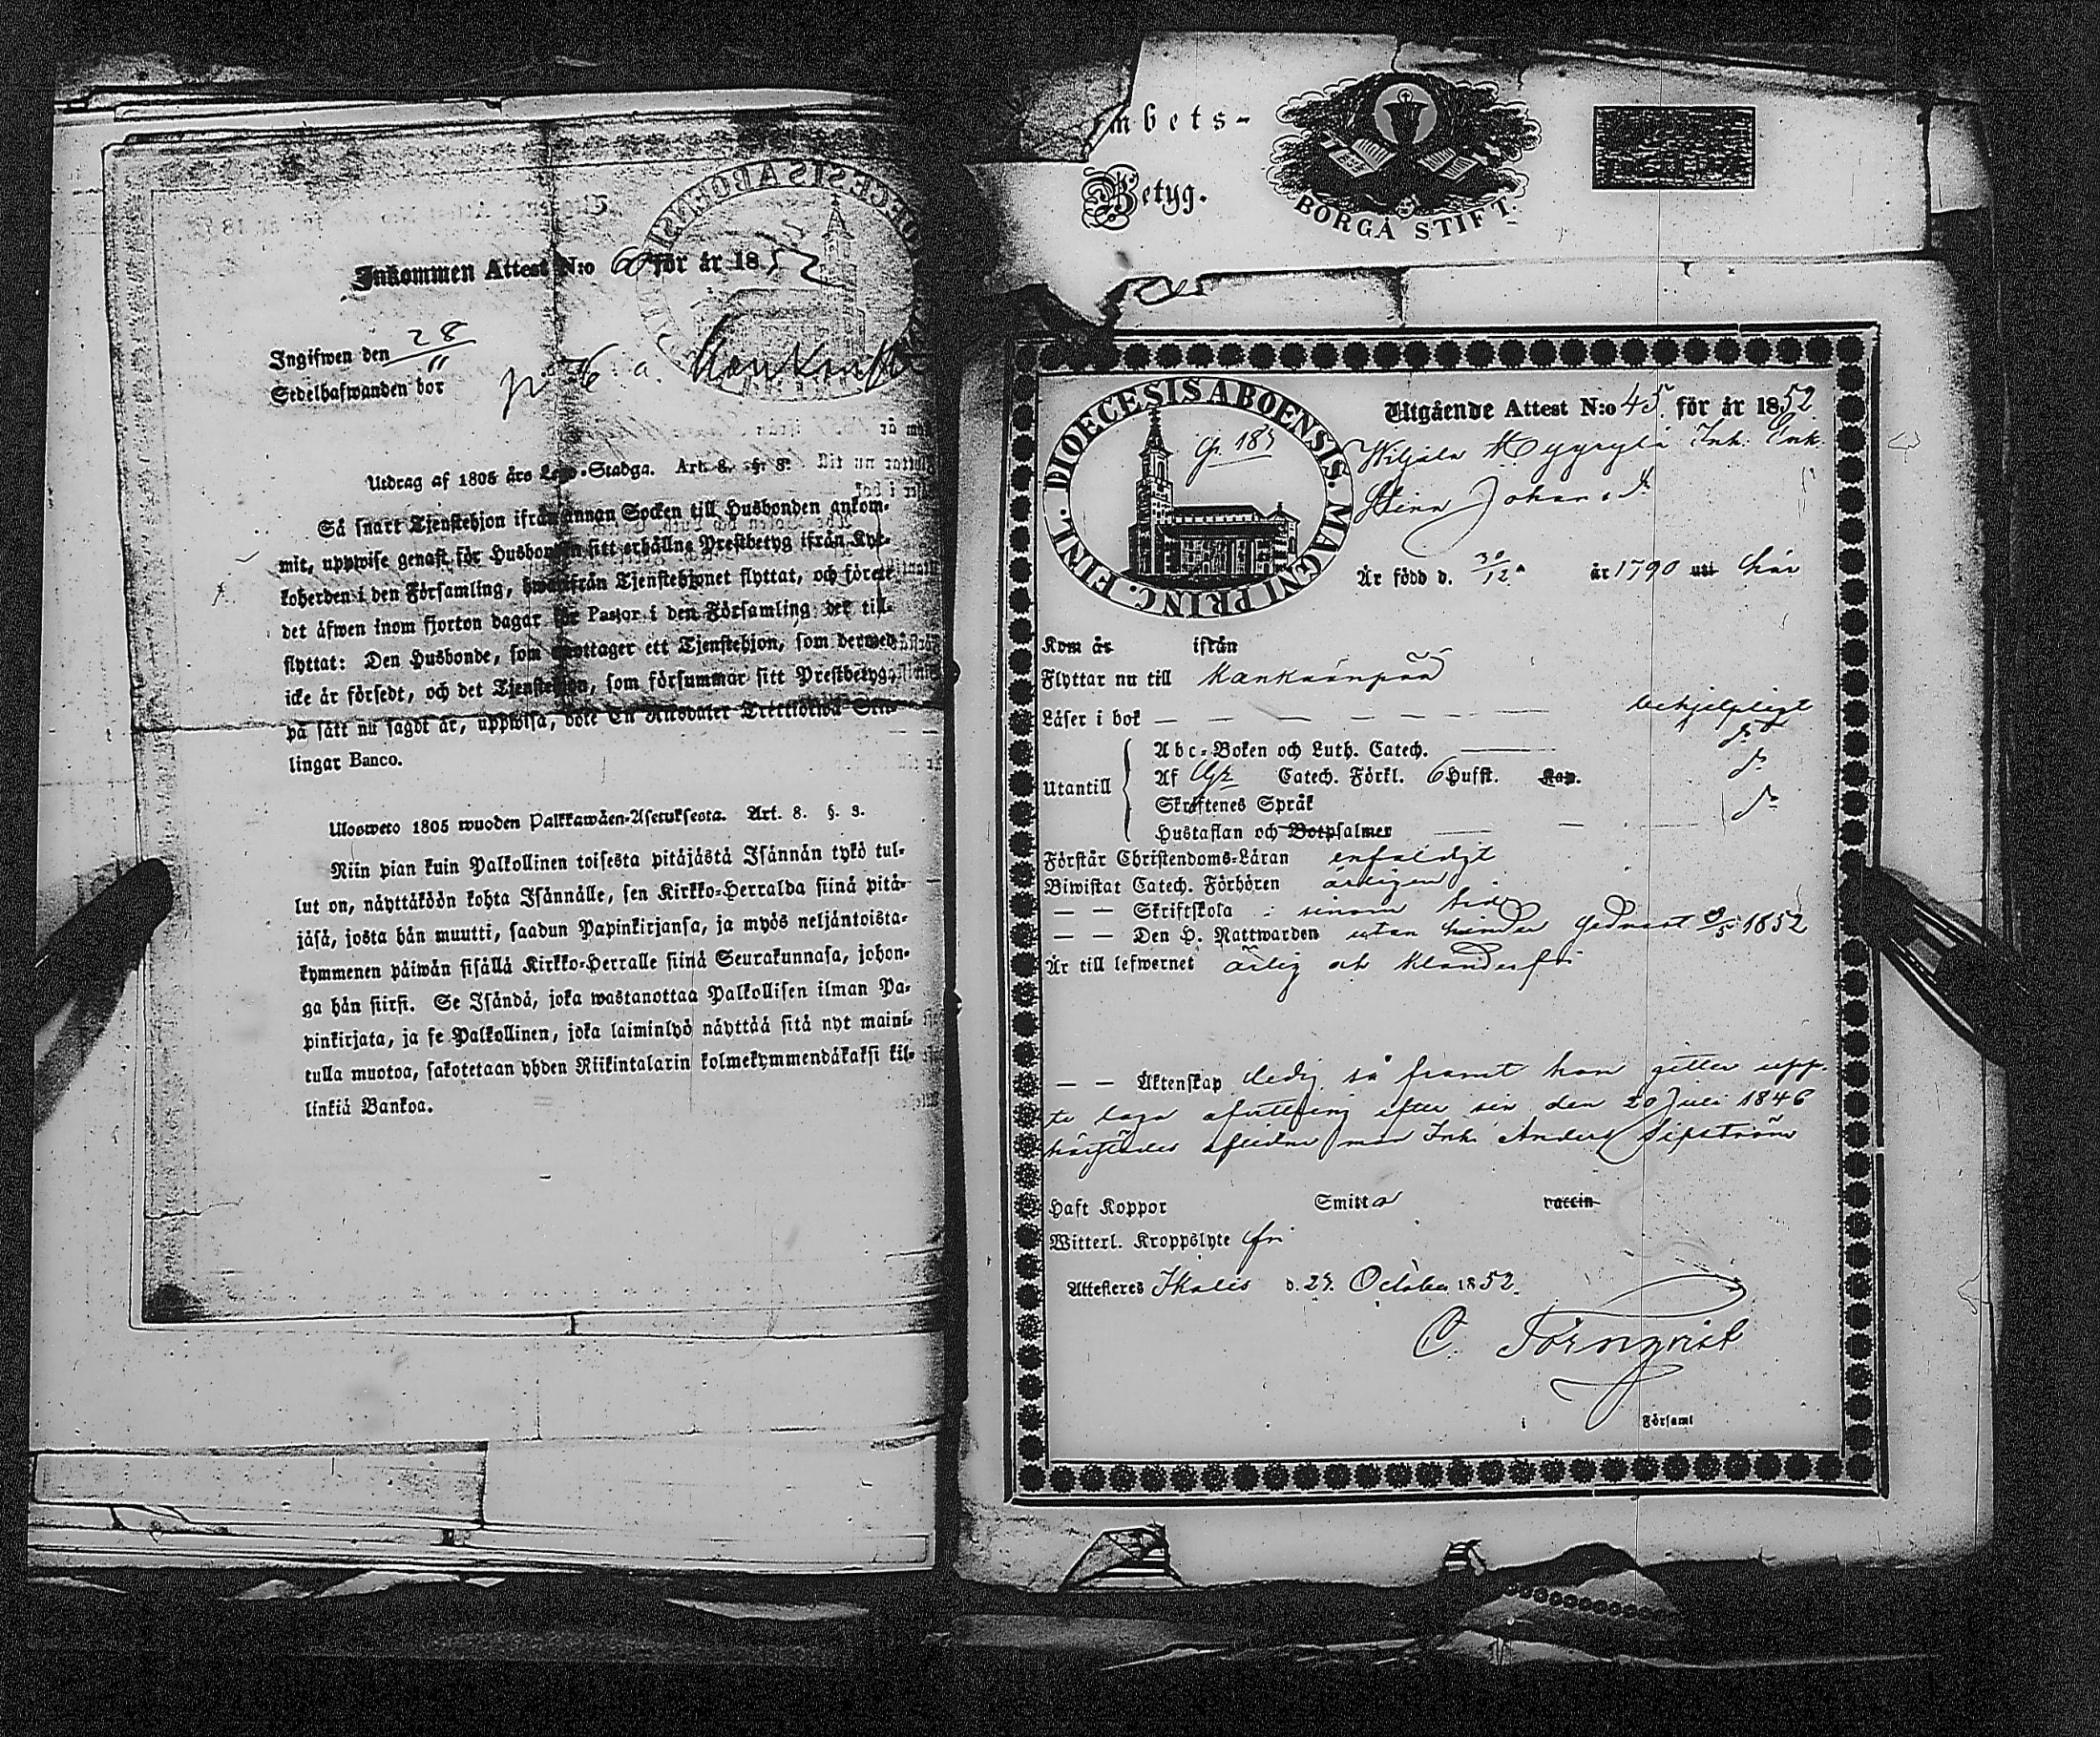 Inkommen Attest N:o för år 1852
Ingifwen den 28
Sedelhafwanden bor
Utdrag af 1805 års Lego-Stadga. Art. 8. §. 3.
Så snart Tjenstehjon ifrån annan Socken till Husbonden ankom-
mit, uppwise genast för Husbonden sitt erhållne Prestbetyg ifrån Kyr-
koherden i den Församling, hwarifrån Tjenstehjonet flyttat, och förete
det äfwen inom fjorton dagar för Pastor i den Församling det till-
flyttat: Den Husbonde, som emottager ett Tjenstehjon, som dermed
icke är försedt, och det Tjenstehjon, som försummar sitt Prestbetyg,
på sätt nu sagdt är, uppwisa, böte En Riksdaler Trettiotwå Skil-
lingar Banco.
Ulosweto 1805 wuoden Palkkawäen-Asetuksesta. Art. 8. §. 3.
Niin pian kuin Palkollinen toisesta pitäjästä Isännän tykö tul-
lut on, näyttäköön kohta Isännälle, sen Kirkko-Herralda siinä pitä-
jäsä, josta hän muutti, saadun Papinkirjansa, ja myös neljäntoista-
kymmenen päiwän sisällä Kirkko-Herralle siinä Seurakunnasa, johon-
ga hän siirsi. Se Isändä, joka wastanottaa Palkollisen ilman Pa-
pinkirjata, ja se Palkollinen, joka laiminlyö näyttää sitä nyt maini-
tulla muotoa, sakotetaan yhden Riikintalarin kolmekymmendäkaksi kil-
linkiä Bankoa.
mbets-
Betyg.
BORGÅ STIFT.
DIOECESIS ABOENSIS. MAGNI PRINC. FINL.
Utgående Attest N:o 45. för år 1852
Wiljala Myyrylä Inh. Enk.
Stina Johansd.
Är född d. 30/12 år 1790 uti här
Kom år ifrån
Flyttar nu till Kankaanpää
Läser i bok — — — — — — — behjelpligt
Utantill
Abc-Boken och Luth. Catech. ——— do
Af Catech. Förkl. 6 Hufst. Kap. do
Skriftenes Språk
Hustaflan och Botpsalmer do
Förstår Christendoms-Läran enfaldigt
Biwistat Catech. Förhören årligen
— — Skriftskola i sinom tid
— — Den H. Nattwarden utan hinder sednast 9/5 1852
Är till lefwernet ärlig och klanderfri
— — Äktenskap ledig, så framt hon gitter upp-
te laga afvittring efter sin den 20 Juli 1846
härstädes aflidne man Inh. Anders Sipström
Haft Koppor Smitta vaccin
Witterl. Kroppslyte fri
Attesteres Ikalis d. 27. October 1852.
C. Törnqvist
i Församl